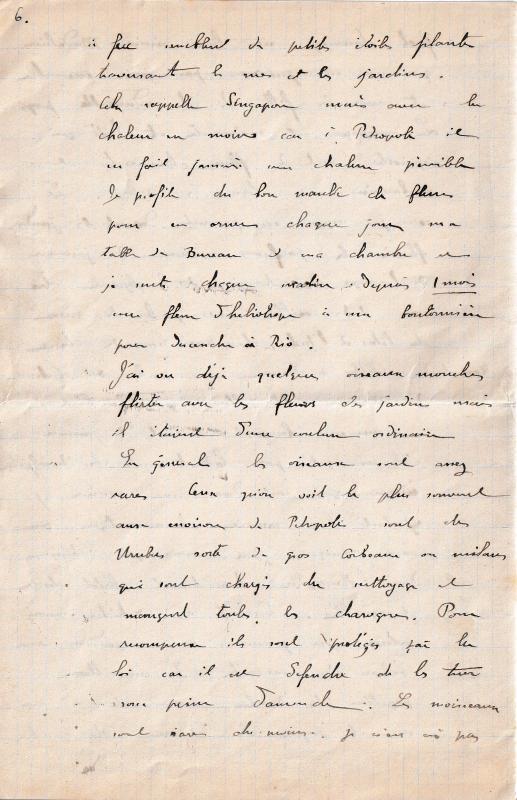 6.
à feu semblent de petites étoiles filantes
traversant les rues et les jardins.
Cela rappelle Singapour mais avec la
chaleur en moins car à Petropolis il
ne fait jamais une chaleur pénible
Je profite du bon marché des fleurs
pour en orner chaque jour ma
table de Bureau et ma chambre et
je mets chaque matin depuis 1 mois
une fleur d'heliotrope à ma boutonnière
pour descendre à Rio.
J'ai vu déjà quelques oiseaux mouches
flirter avec les fleurs des jardin mais
il étaient d'une couleur ordinaire
En général les oiseaux sont assez
rares Ceux qu'on voit le plus souvent
aux environs de Petropolis sont des
Urubus sorte de gros corbeaux ou milans
qui sont chargés du nettoyage et
mangent toutes les charognes. Pour
recompense ils sont protégés par la
loi car il est défendu de les tuer
sous peine d'amende. Les moineaux
sont rares du moins je n'en ai pas